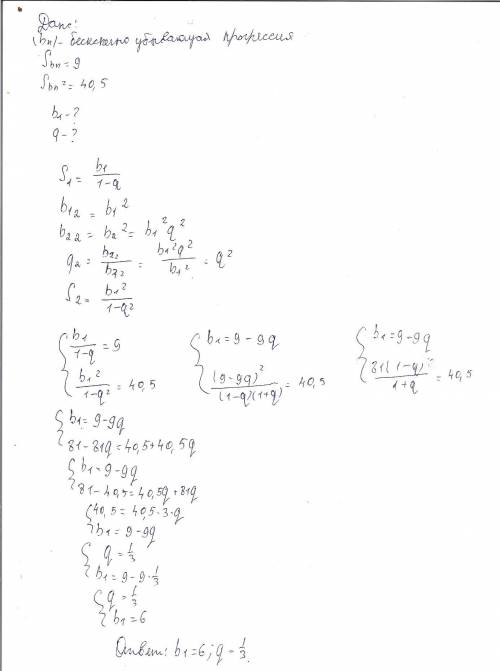 Дано:
(bn) - бесконечно убывающая прогрессия
S bn = 9
S bn² = 40,5
b1 - ?
q - ?
S1 = b1/(1-q)
b12 = b1²
b22 = b2² = b1²q²
q2 = b22/b12 = b1²q²/b1² = q²
S2 = b1²/(1-q²)
{ b1/(1-q) = 9 { b1 = 9 - 9q { b1 = 9 - 9q
b1²/(1-q²) = 40,5 (9-9q)²/((1-q)(1+q)) = 40,5 81(1-q)/(1+q) = 40,5
{ b1 = 9 - 9q
81 - 81q = 40,5 + 40,5q
{ b1 = 9 - 9q
81 - 40,5 = 40,5q + 81q
{ 40,5 = 40,5·3·q
b1 = 9 - 9q
{ q = 1/3
b1 = 9 - 9·1/3
{ q = 1/3
b1 = 6
Ответ: b1 = 6; q - 1/3.